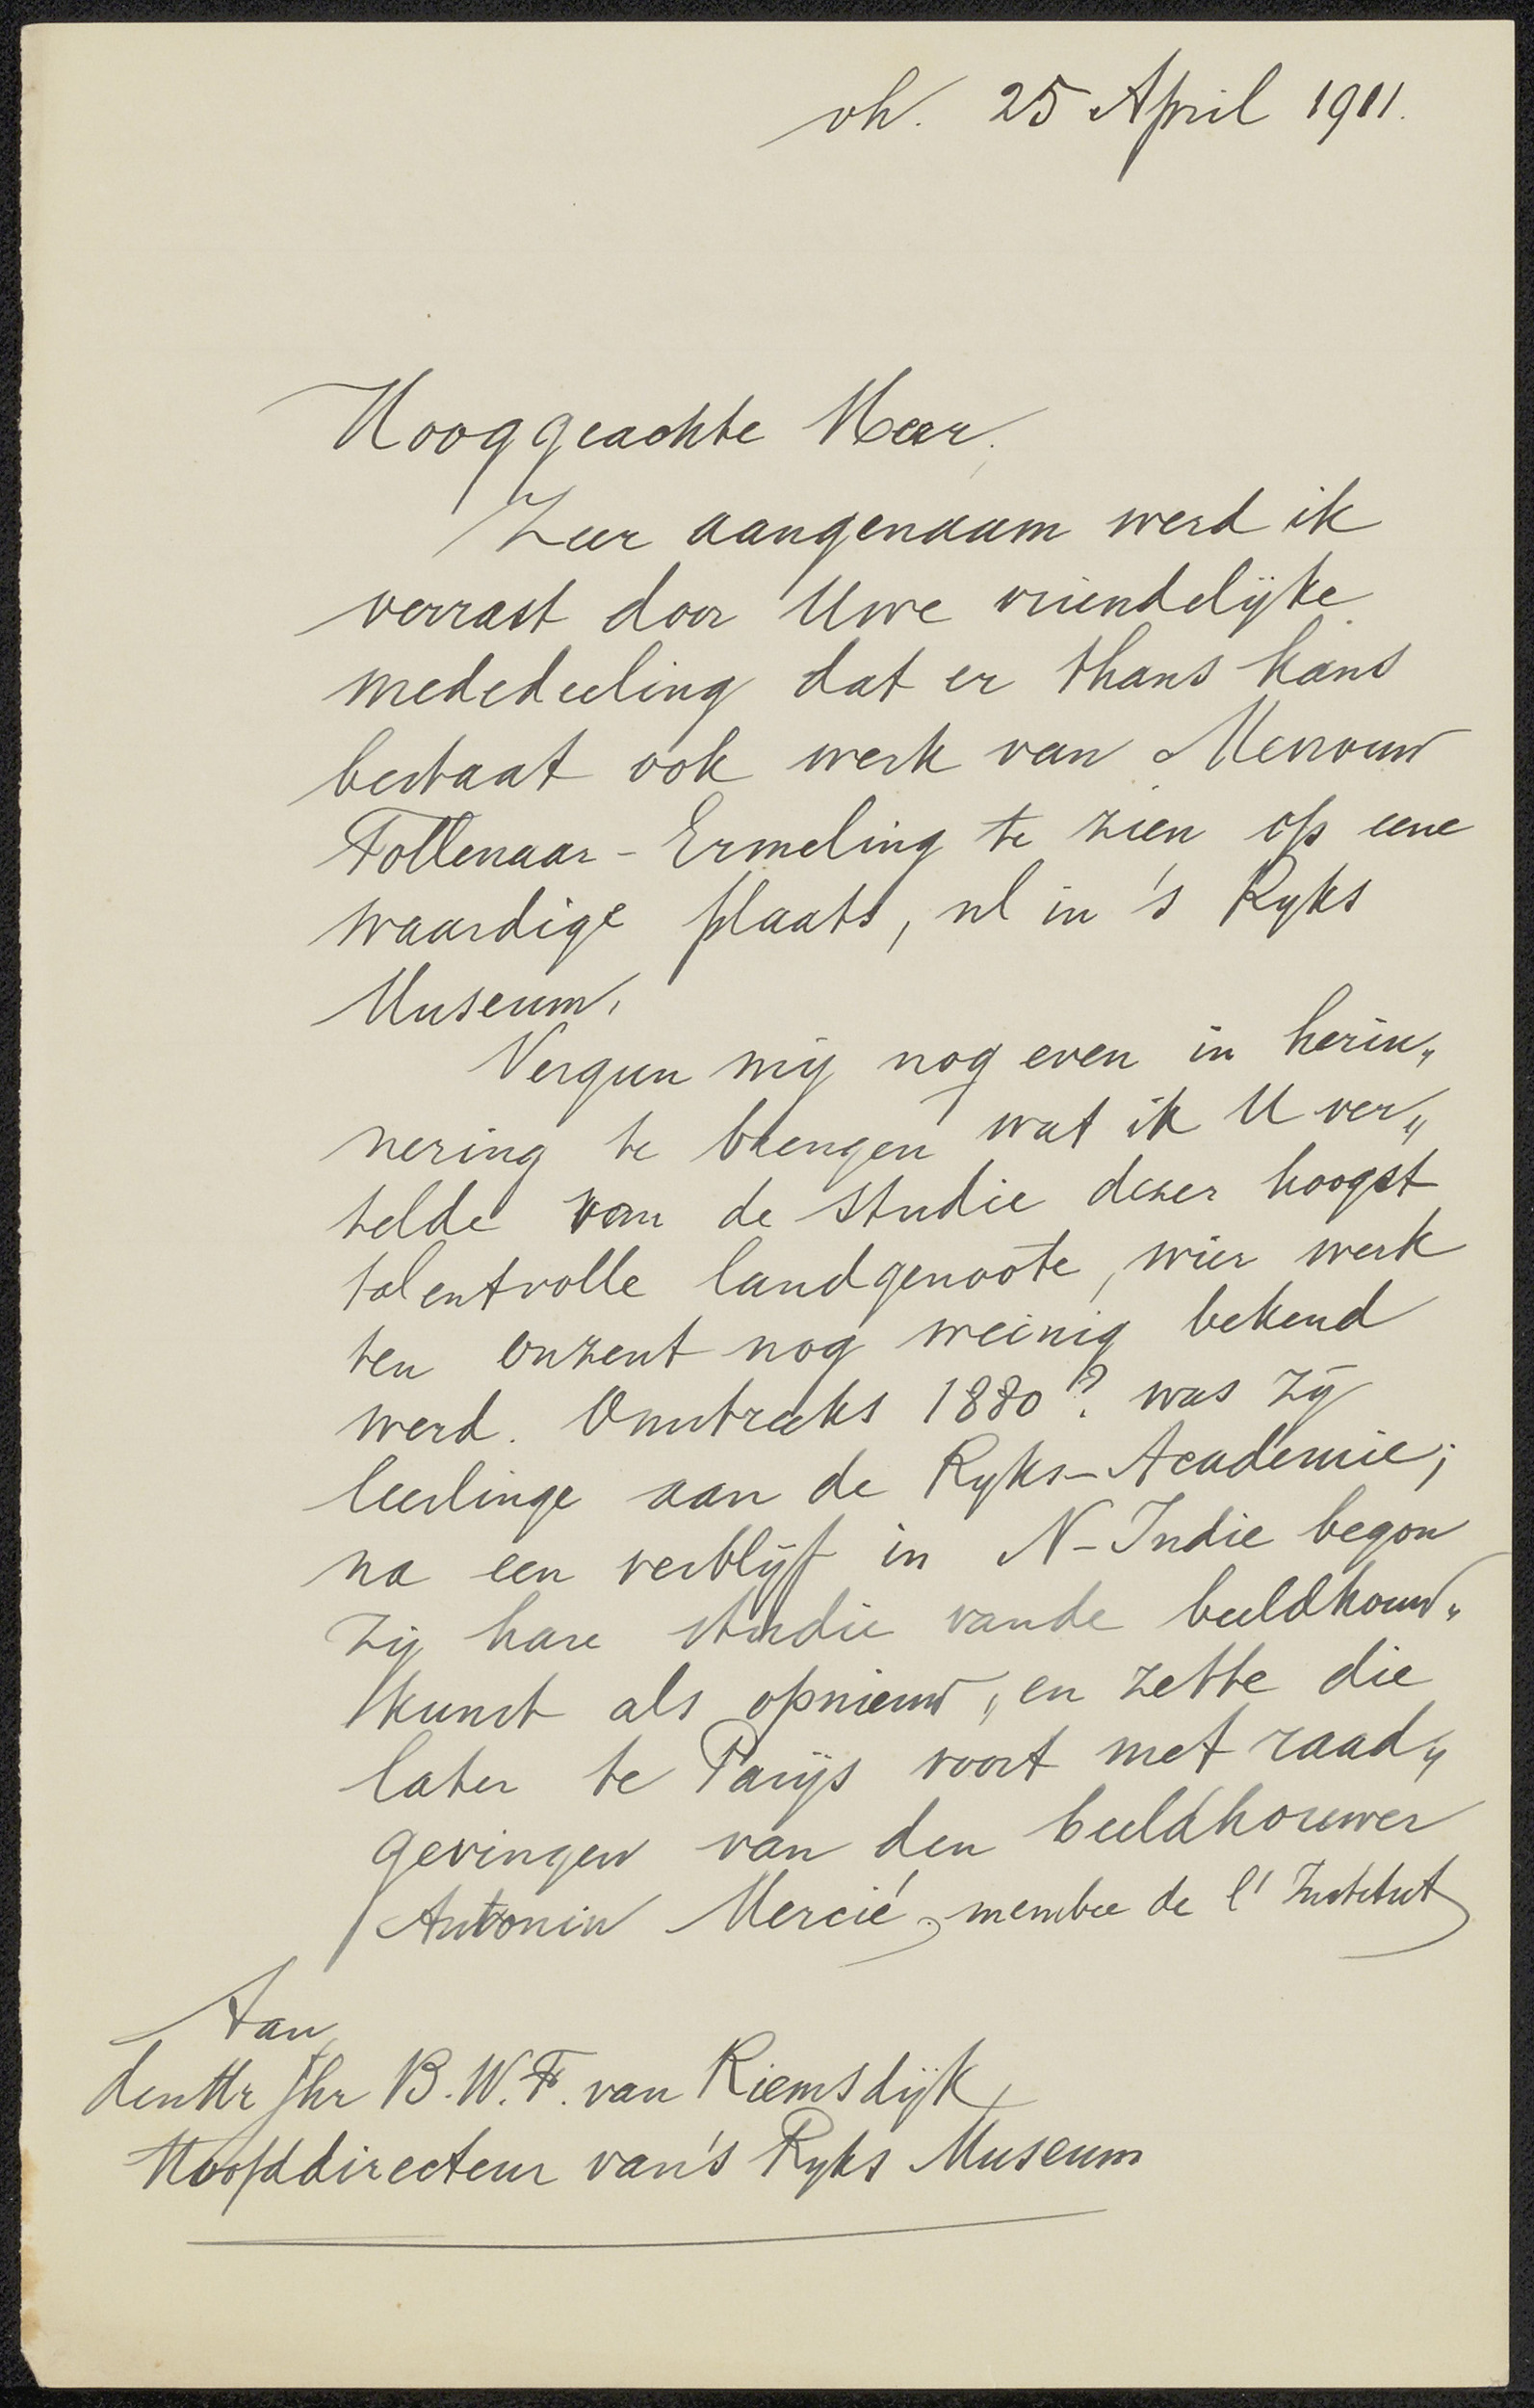 vh. 25 April 1911.
Hooggeachte Heer,
Zeer aangenaam werd ik
verrast door Uwe vriendelijke
mededeeling dat er thans kans
bestaat ook werk van Mevrouw
Follenaar-Ermeling te zien op eene
waardige plaats, nl in 's Ryks
Museum.
Vergun mij nog even in herin„
nering te brengen wat ik U ver„
telde van de studie dezer hoogst
talentvolle landgenoote, wier werk
ten onzent nog weinig bekend
werd. Omstreeks 1880? was zij
leerlinge aan de Ryks-Academie;
na een verblijf in N-Indie begon
zij hare studie vande beeldhouw„
kunst als opnieuw, en zette die
later te Parijs voort met raad„
gevingen van den beeldhouwer
Antonin Mercié, membre de l'Institut
Aan
den Hr Jhr B.W.F. van Riemsdijk
Hoofddirecteur van 's Ryks Museum